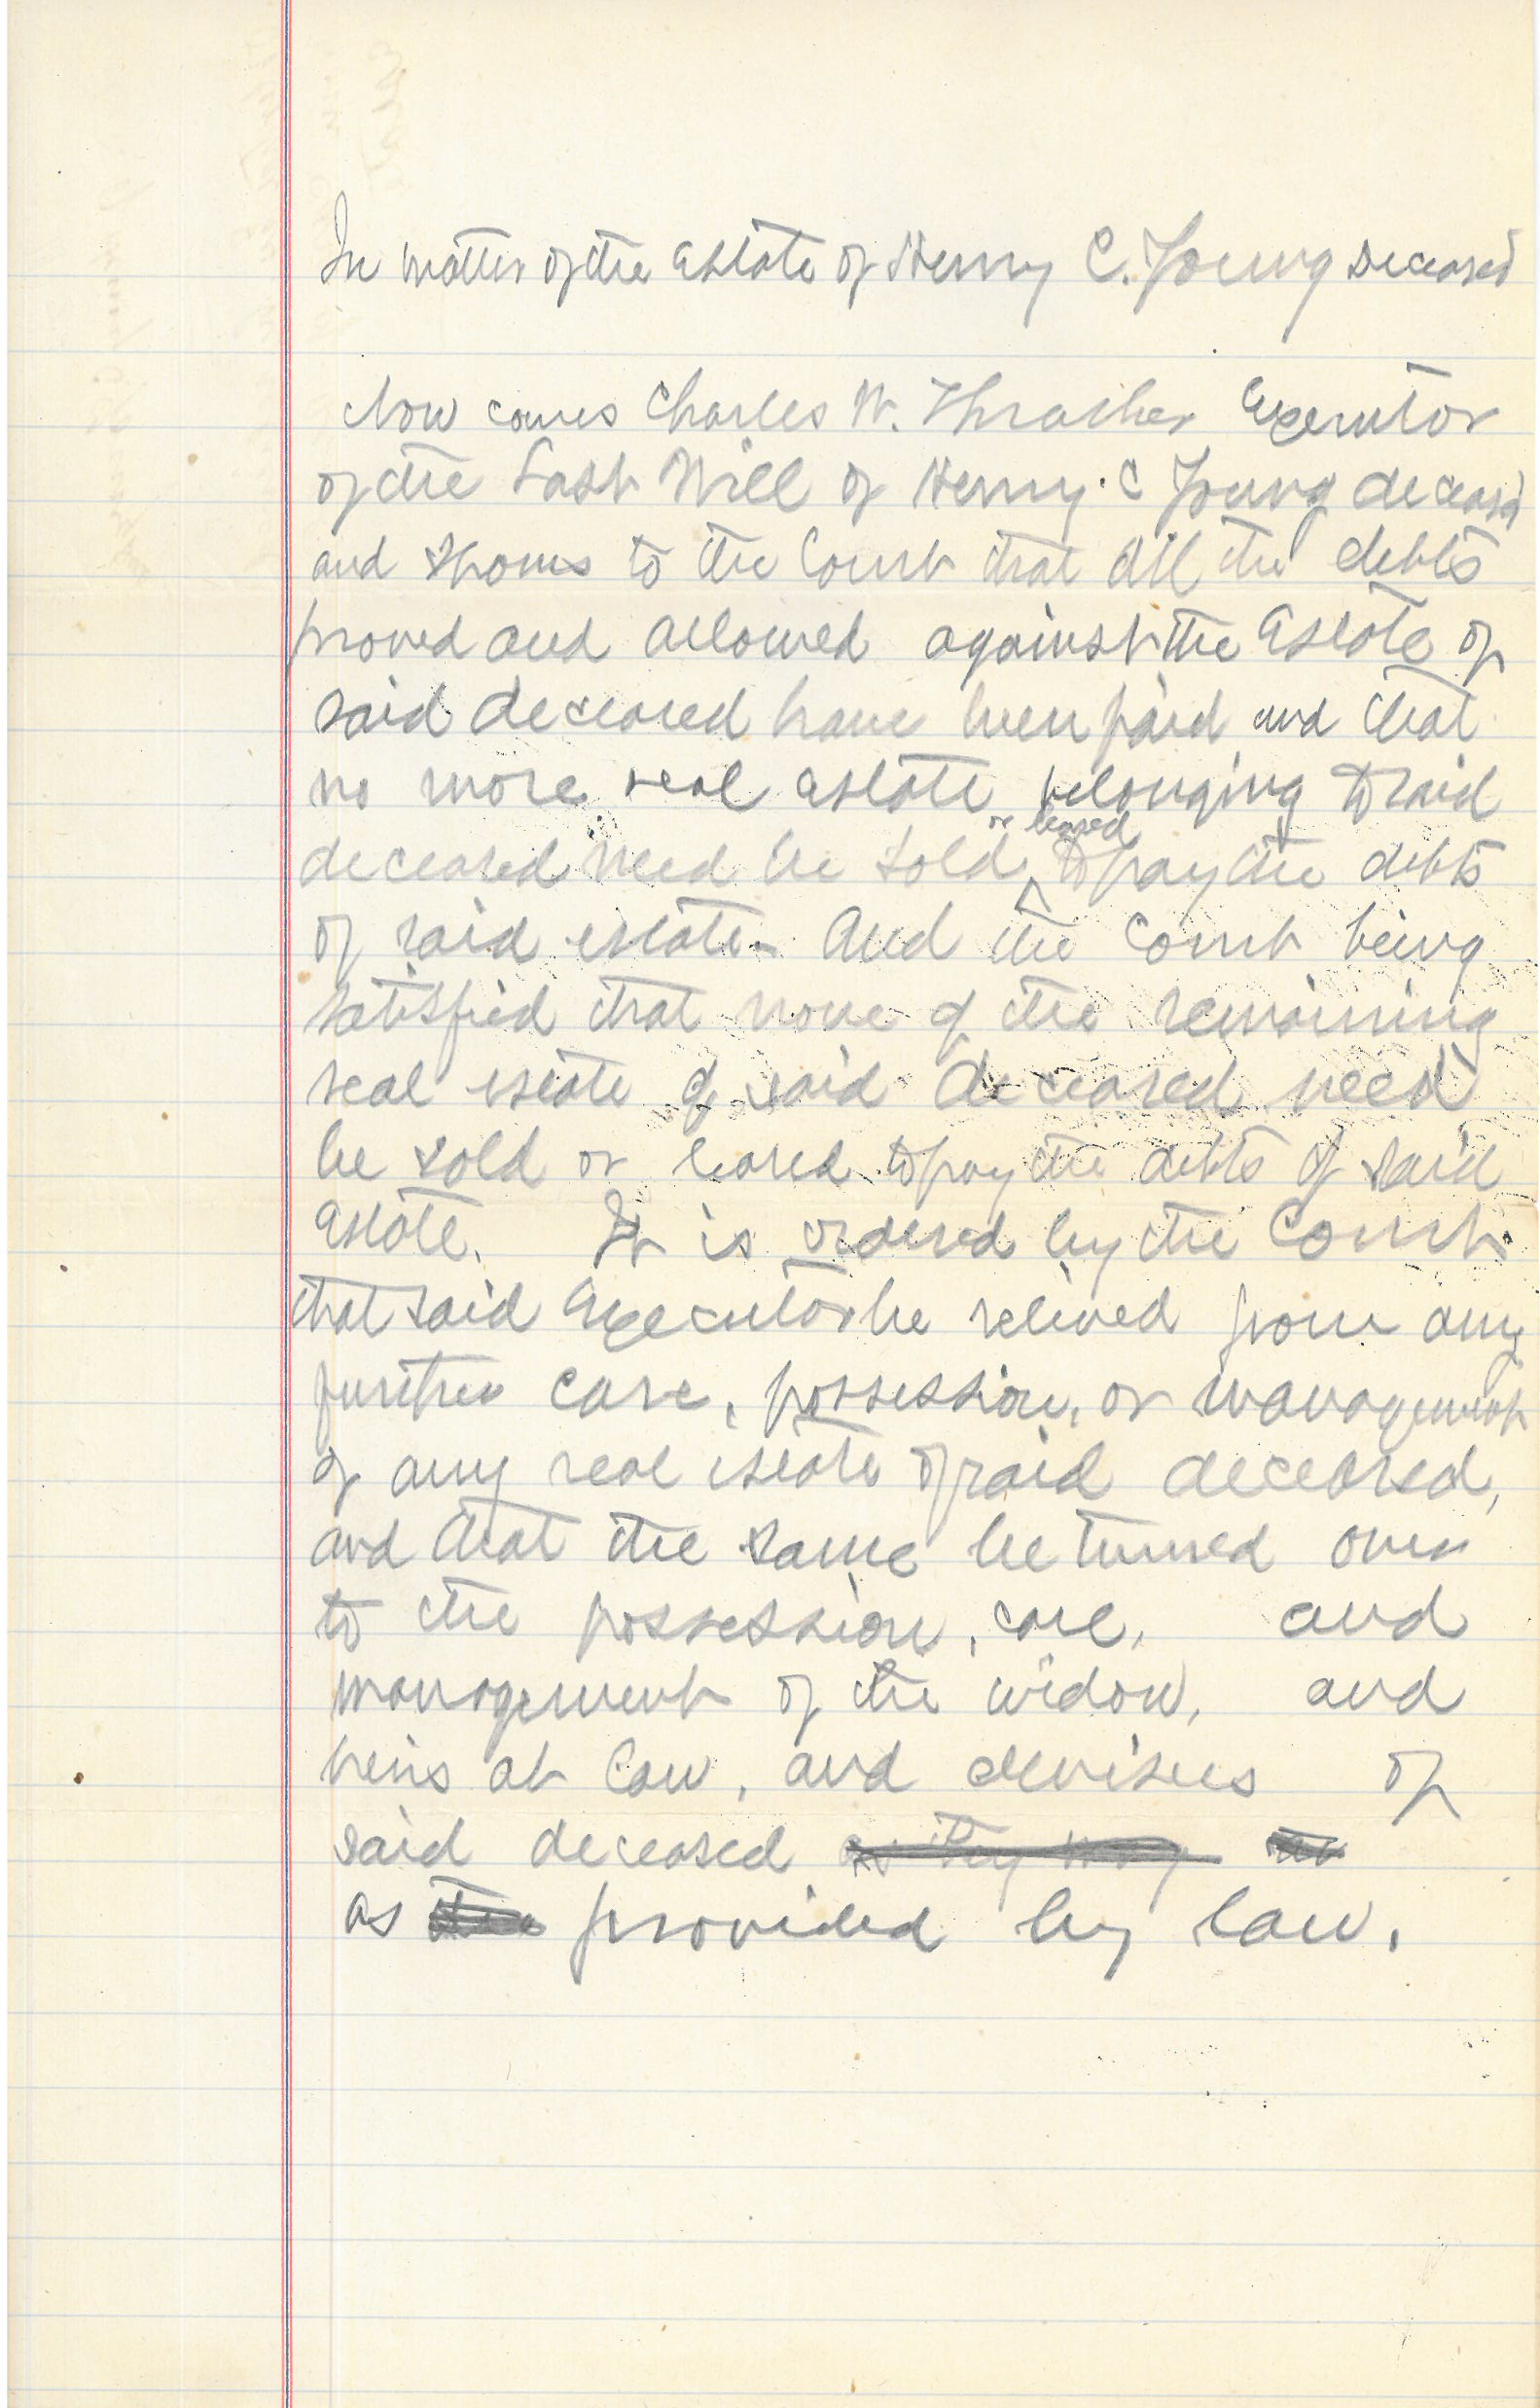 In matter of the Estate of Henry C. Young Deceased
Now comes Charles W. Thrasher Executor
of the Last Will of Henry C Young deceased
and shows to the Court that all the debts
proved and allowed against the Estate of
said deceased have been paid and that
no more real estate belonging to said
or leased
deceased need be sold to pay the debts
of said estate. And the Court being
satisfied that none of the remaining
real estate of said deceased need
be sold or leased to pay the debts of said
Estate. It is ordered by the Court
that said Executor be relived from any
further care, possession, or management
of any real estate of said deceased,
and that the same be turned over
to the possession, care, and
management of the widow, and
heirs at law, and devisees of
said deceased as they may
as the provided by law.